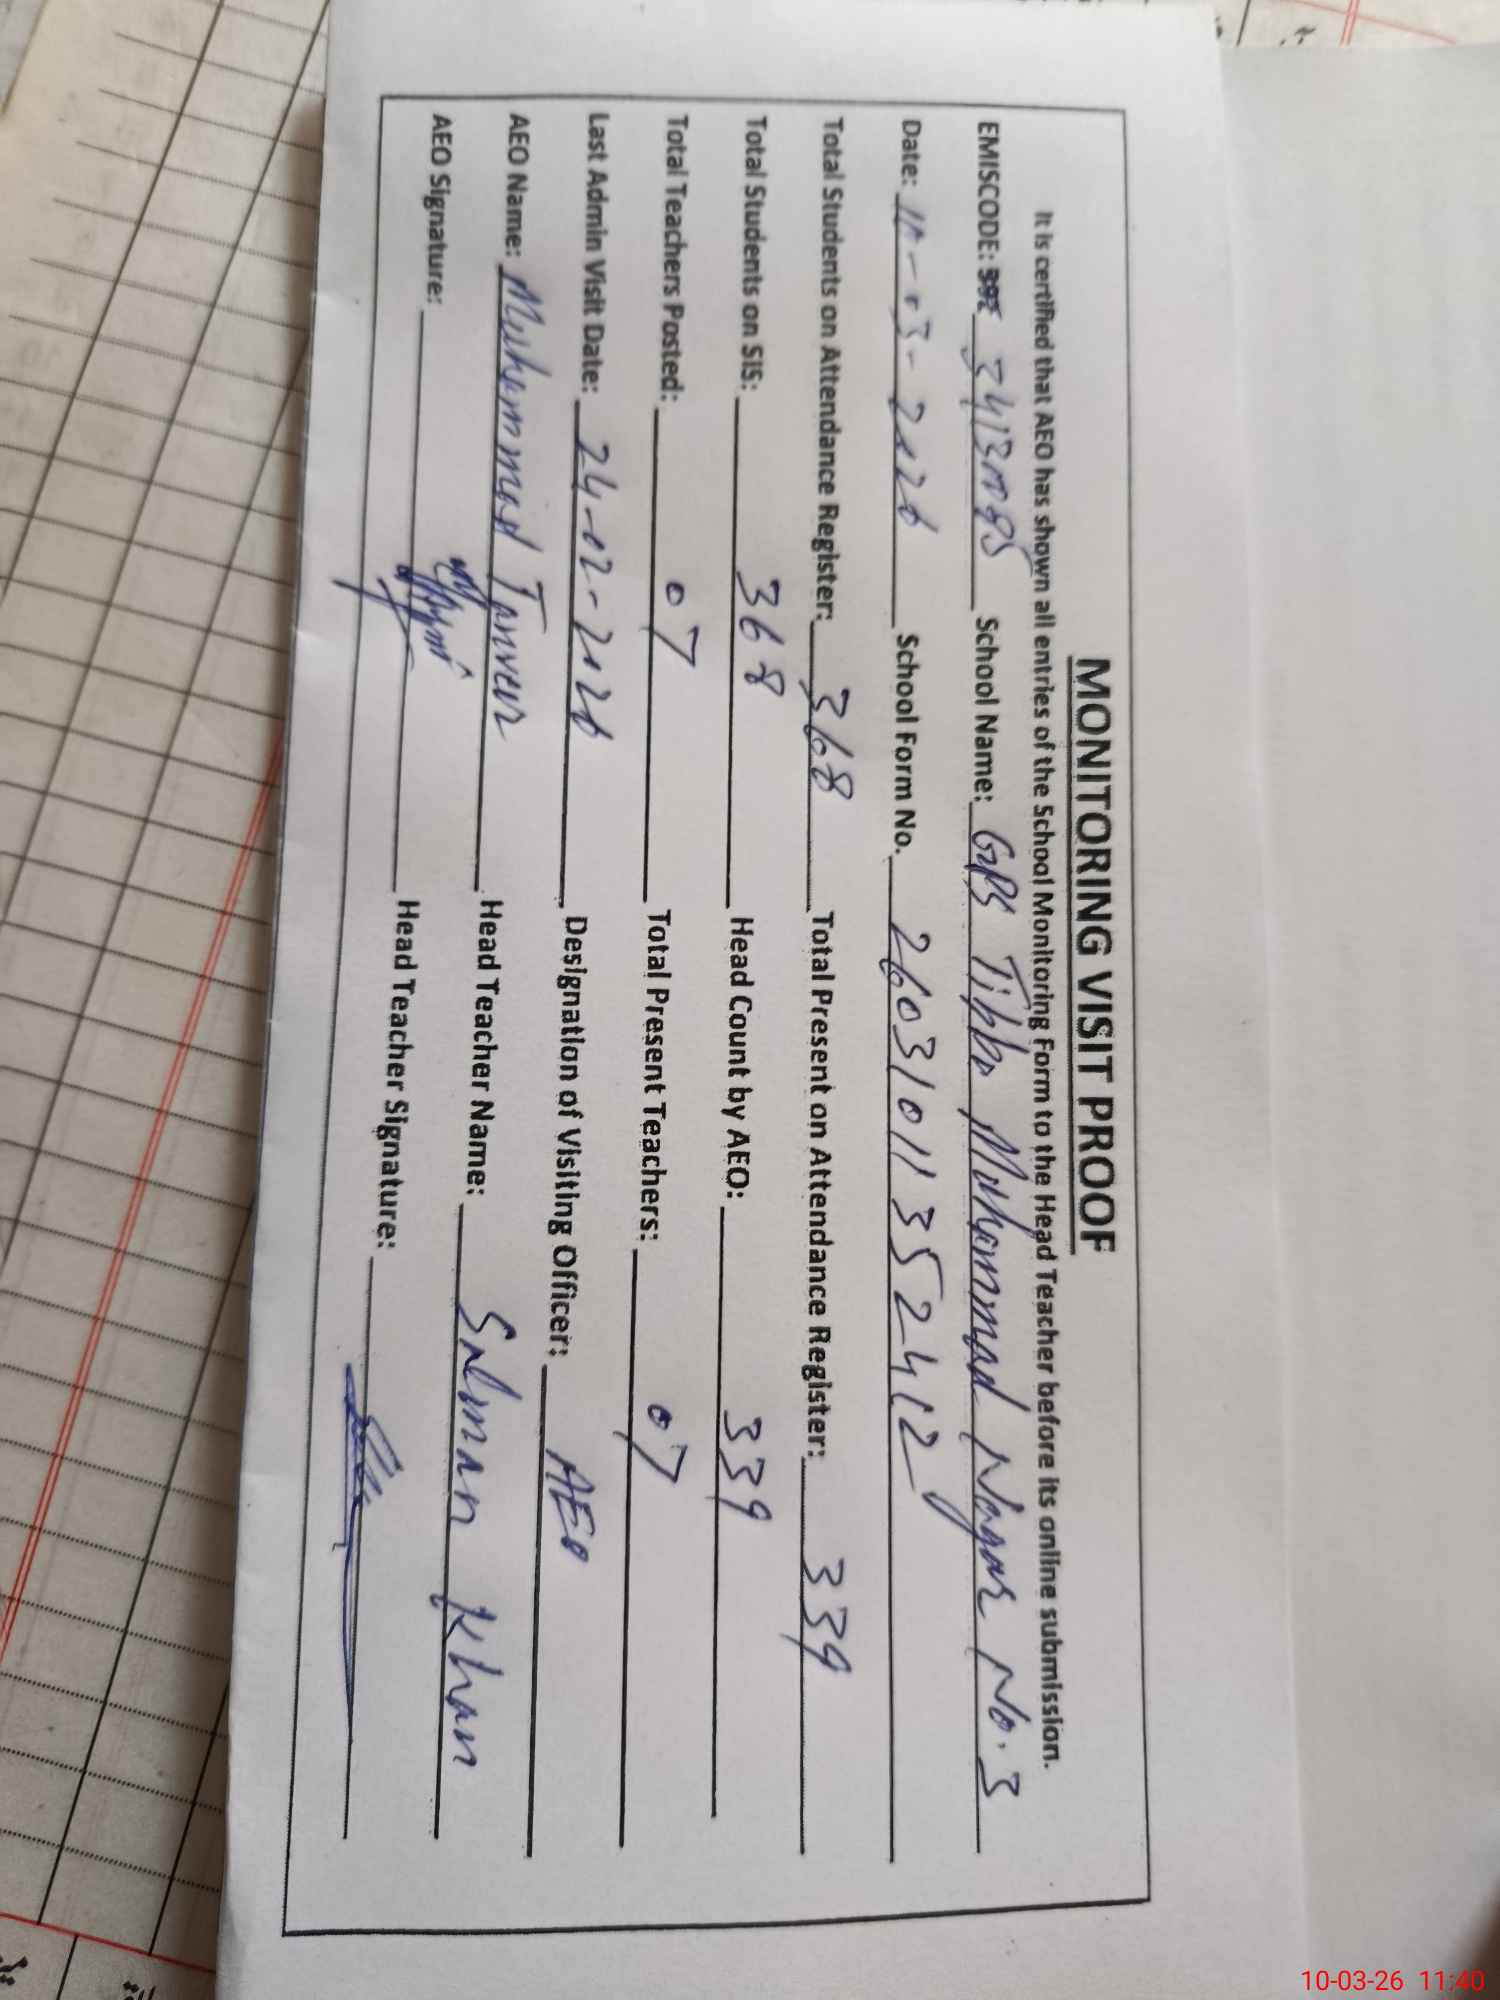 MONITORING VISIT PROOF
It is certified that AEO has shown all entries of the School Monitoring Form to the Head Teacher before its online submission.
EMISCODE: School Name: GPS Tibba Muhammad Nagar No. 3
Date: 10-03-2026 School Form No. 26031011352412
Total Students on Attendance Register: 368 Total Present on Attendance Register: 339
Total Students on SIS: 368 Head Count by AEO: 339
Total Teachers Posted: 07 Total Present Teachers: 07
Last Admin Visit Date: 24-02-2026 Designation of Visiting Officer: AEO
AEO Name: Muhammad Tanveer Head Teacher Name: Salman Khan
AEO Signature: Head Teacher Signature:
10-03-26 11:40